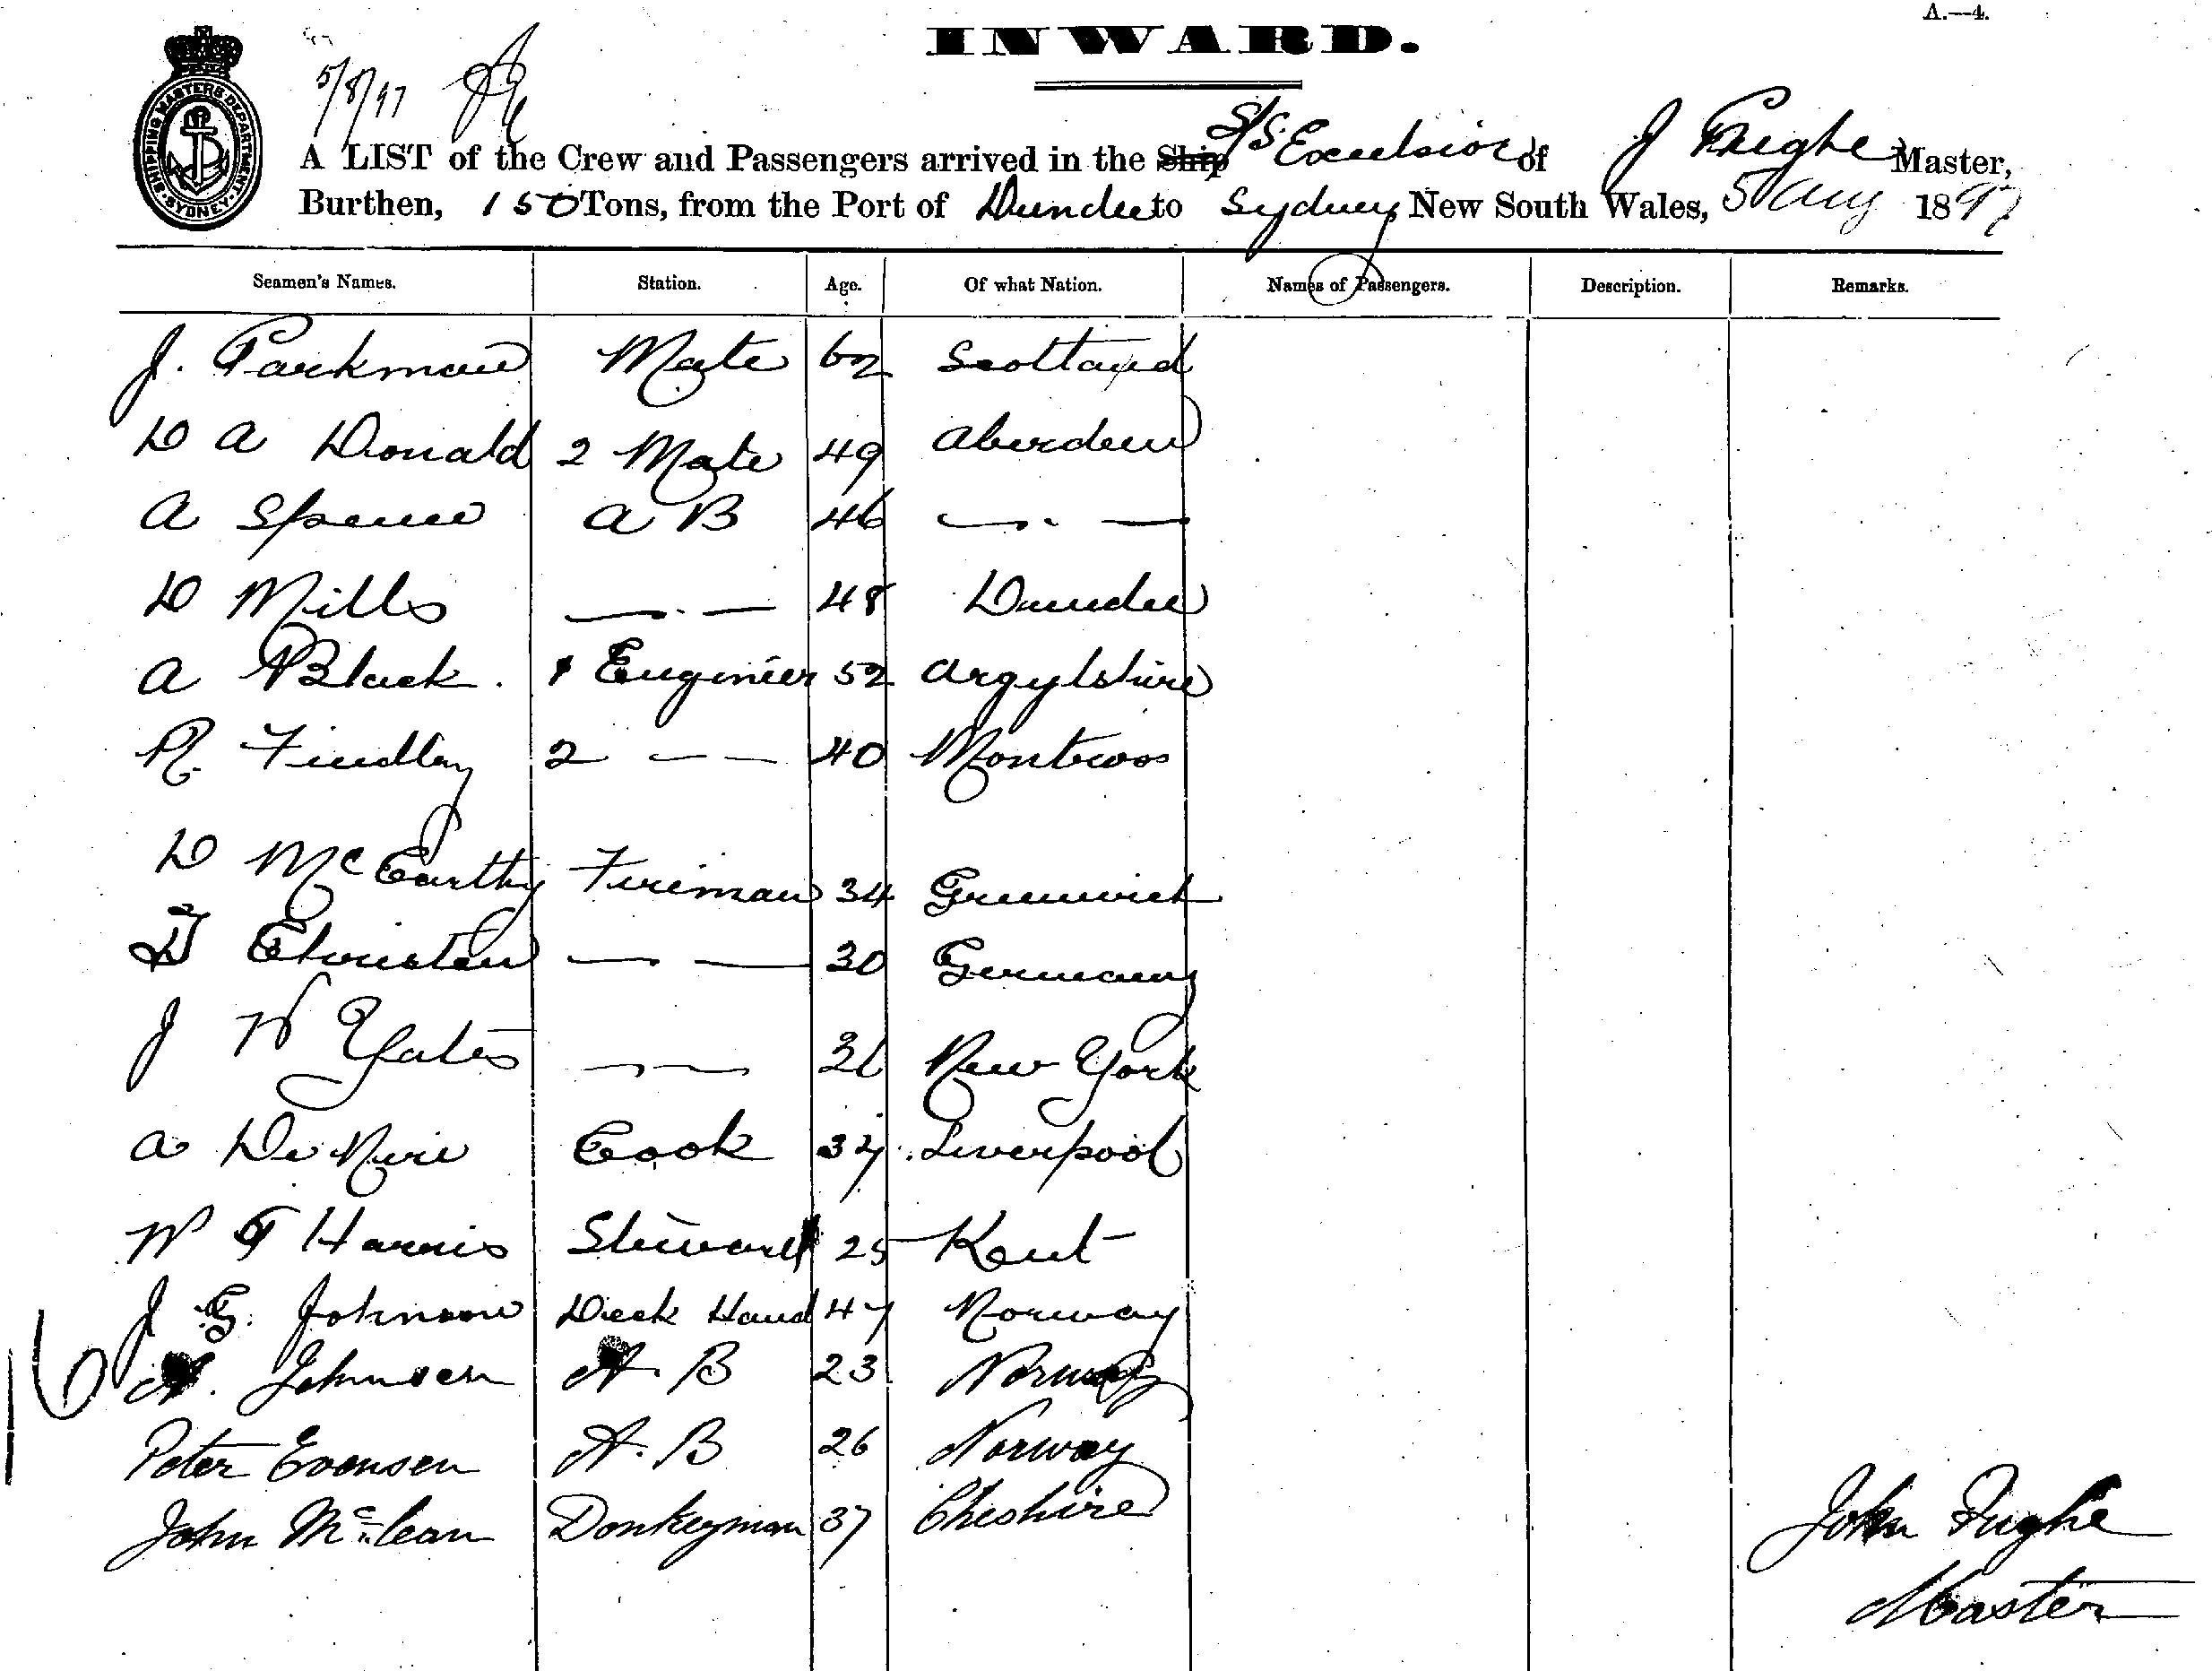 A.—4.
INWARD.
5/8/97
SHIPPING MASTERS DEPARTMENT SYDNEY
A LIST of the Crew and Passengers arrived in the Ship S/S. Excelsior of J Pughe Master,
Burthen, 150 Tons, from the Port of Dundee to Sydney New South Wales, 5 Aug 1897
Seamen's Names. Station. Age. Of what Nation. Names of Passengers. Description. Remarks.
J. Parkman Mate 62 Scotland
D A Donald 2 Mate 49 Aberdeen
A Spence A B 46 — " —
D Mills — " — 48 Dundee
A Black. 1 Engineer 52 Argylshire
R. Findlay 2 — — 40 Montross
D McCarthy Fireman 34 Greenwich
Christen — " — 30 Germany
J W Yates — " — 31 New York
A Cook 37 Liverpool
W G Harris Steward 25 Kent
J G. Johnson Deck Hand 47 Norway
A. Johnsen A. B 23 Norway
Peter Evensen A. B 26 Norway
John McLean Donkeyman 37 Cheshire
16
John Pughe
Master